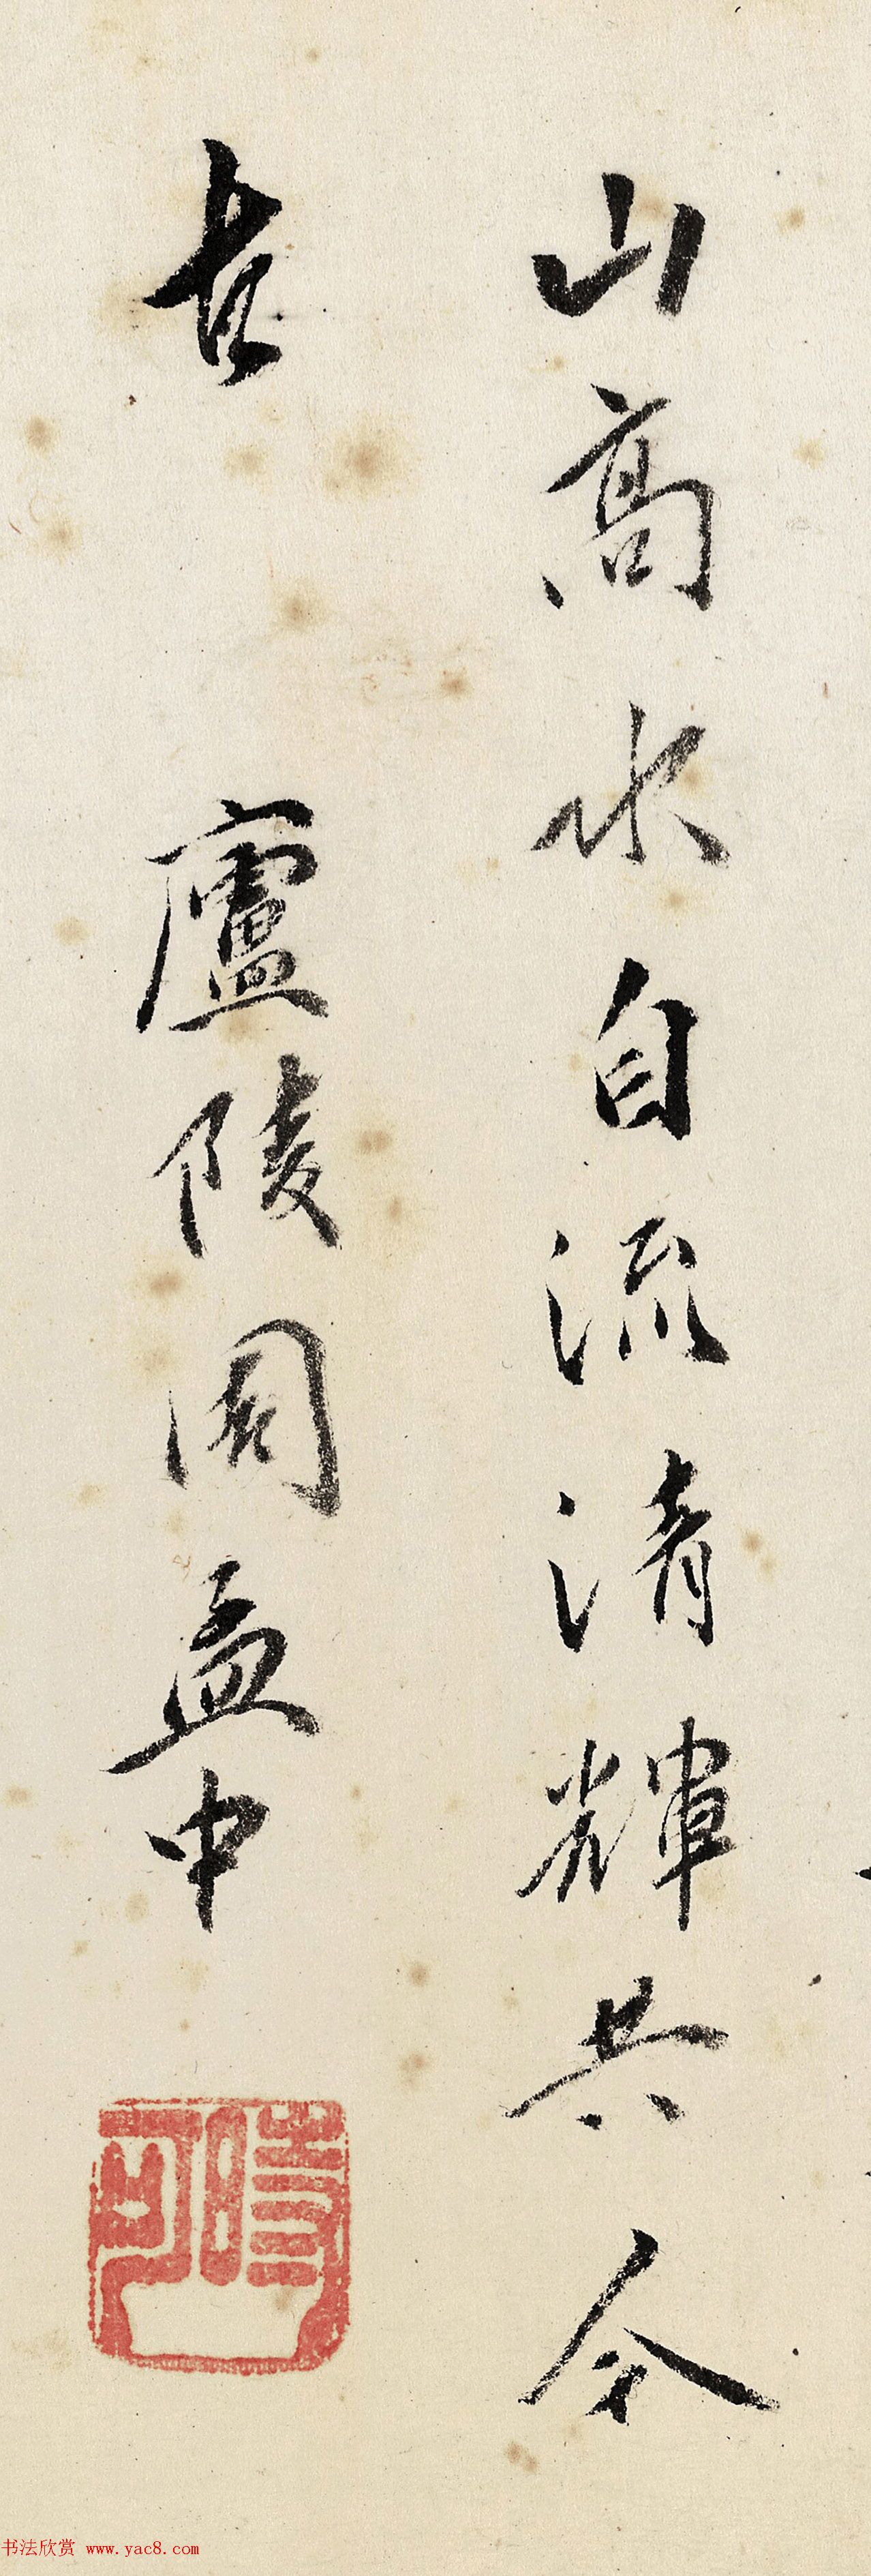 山高水自流清輝共今
古
廬陵周孟中
书法欣赏 www.yac8.com